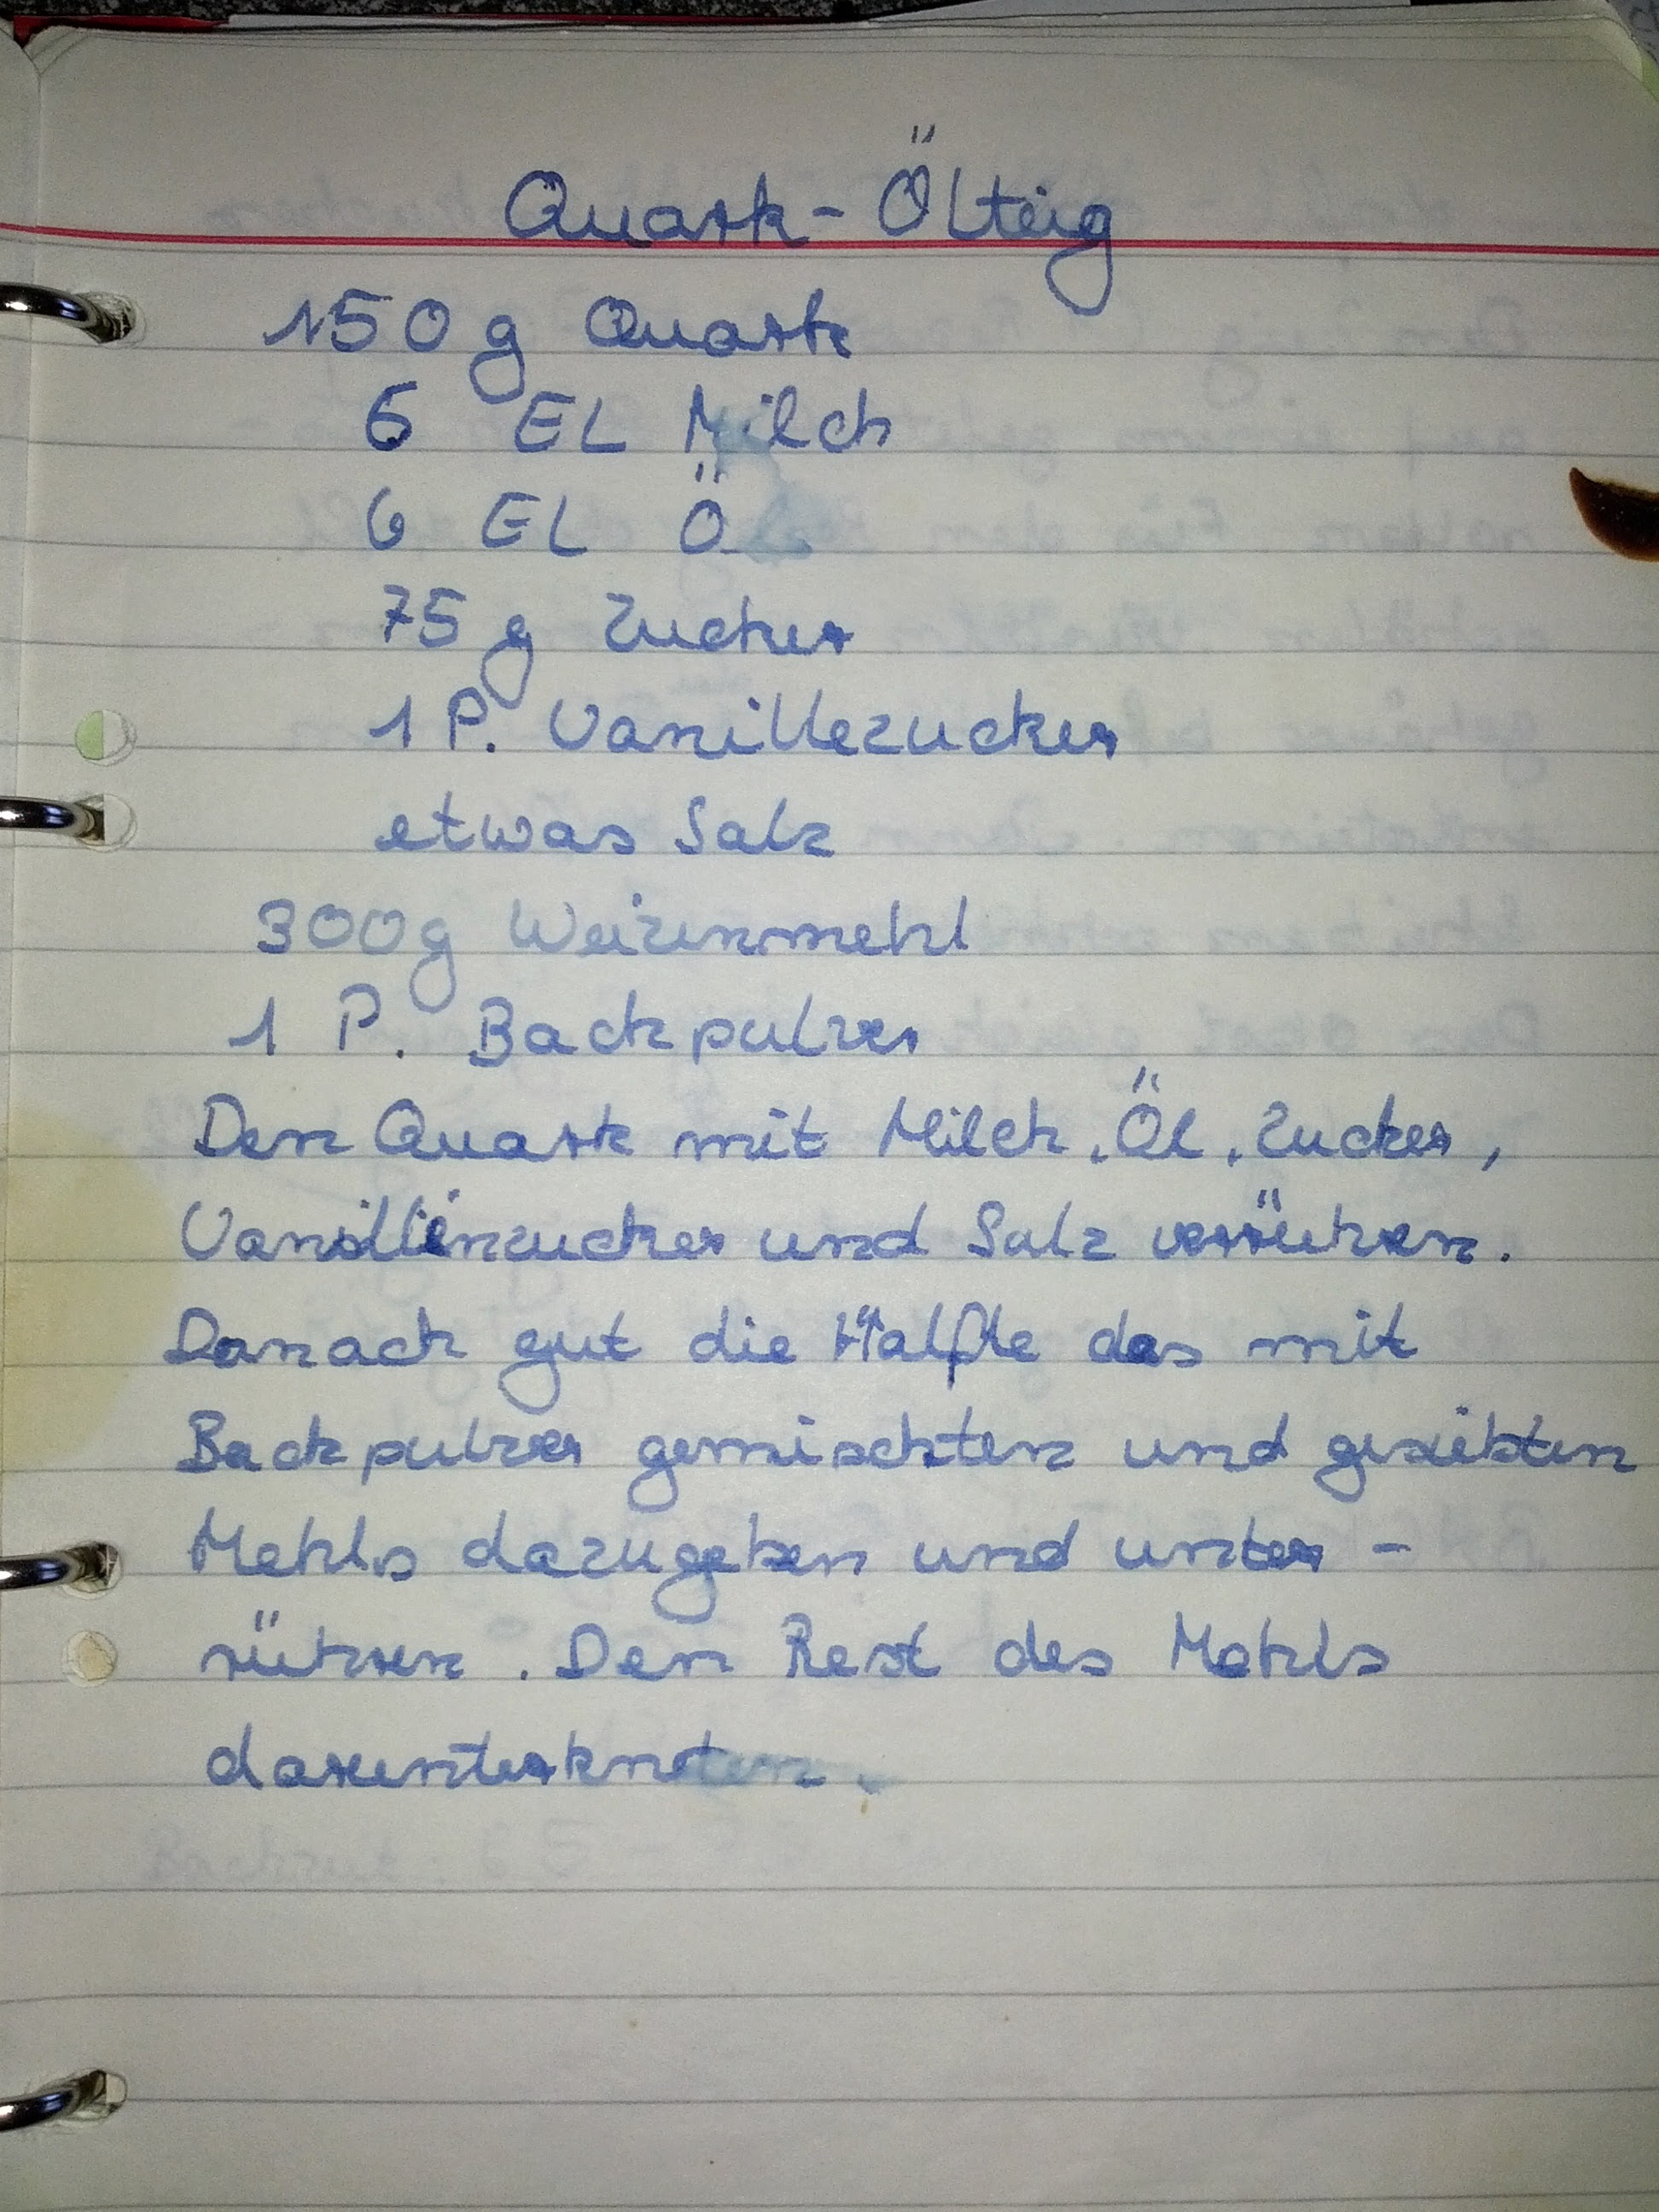 Quark-Ölteig
150 g Quark
6 EL Milch
6 EL Öl
75 g Zucker
1 P. Vanillezucker
etwas Salz
300g Weizenmehl
1 P. Backpulver
Den Quark mit Milch, Öl, Zucker,
Vanillinzucker und Salz verrühren.
Danach gut die Hälfte des mit
Backpulver gemischten und gesiebten
Mehls dazugeben und unter-
rühren. Den Rest des Mehls
darunterkneten.